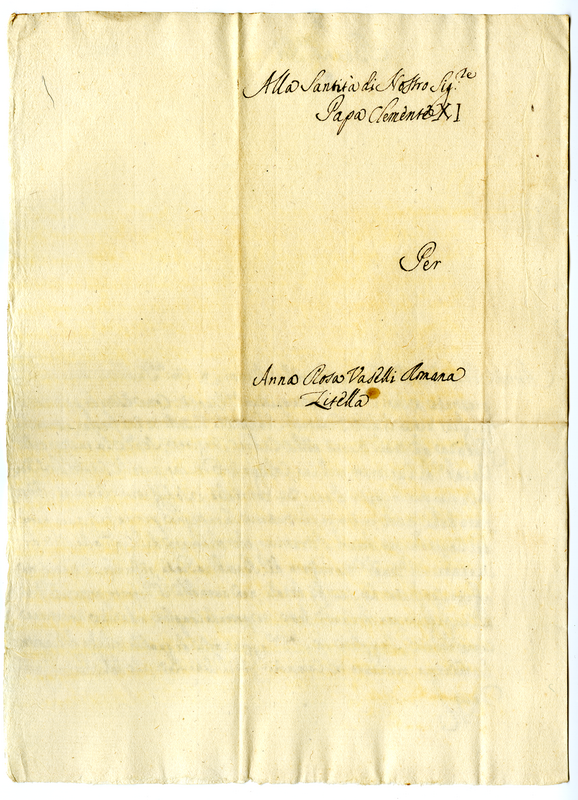 Alla Santità di Nostro Sig.re
Papa Clemente XI
Per
Anna Rosa Vaselli Romana
Zitella